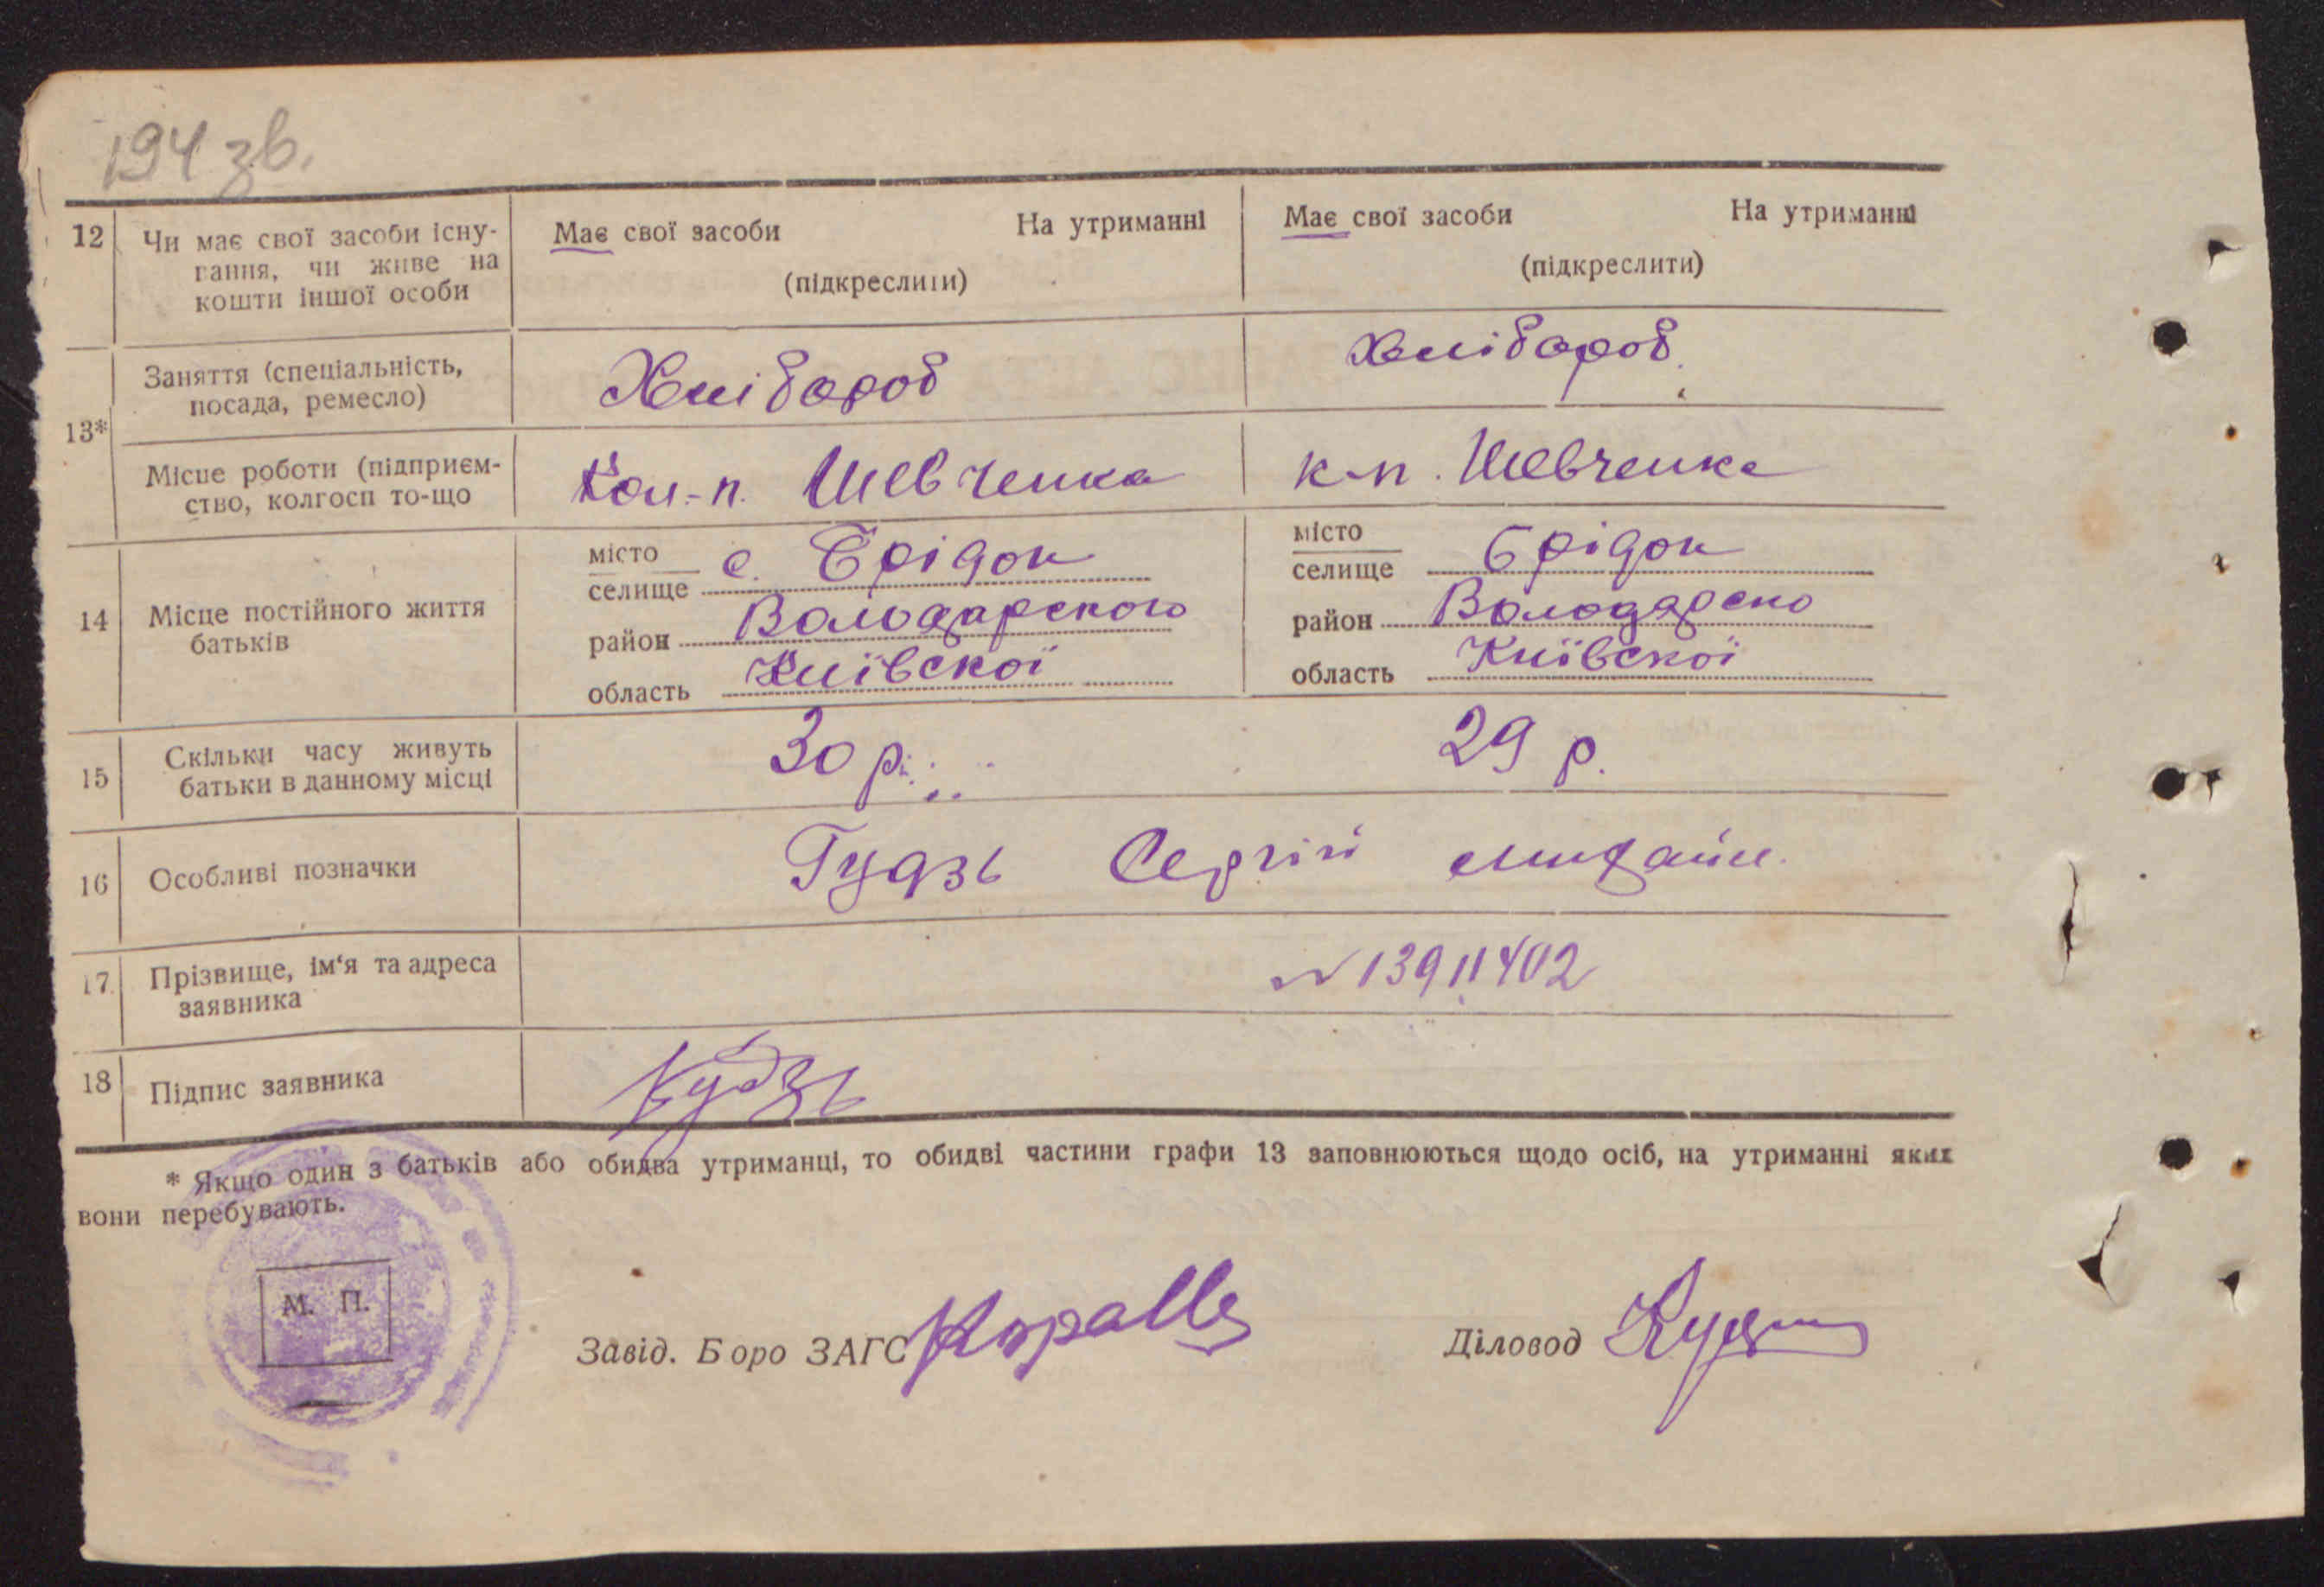 194 зв.
12 Чи має свої засоби існу- Має свої засоби На утриманні Має свої засоби На утриманні
вання, чи живе на (підкреслити) (підкреслити)
кошти іншої особи
13* Заняття (спеціальність, Хлібороб Хлібороб.
посада, ремесло)
Місце роботи (підприєм- Кол.-п. Шевченка к-п. Шевченка
ство, колгосп то-що
14 Місце постійного життя
батьків
місто
селище с. Брідок
район Володарского
область Київскої
місто
селище Брідок
район Володарско
область Київскої
15 Скільки часу живуть 30 р. 29 р.
батьки в данному місці
16 Особливі позначки Гудзь Сергій Михайл.
17 Прізвище, ім‘я та адреса N 13911402
заявника
18 Підпис заявника Гудзь
* Якщо один з батьків або обидва утриманці, то обидві частини графи 13 заповнюються щодо осіб, на утриманні яких
вони перебувають.
М. П.
Завід. Боро ЗАГС Діловод